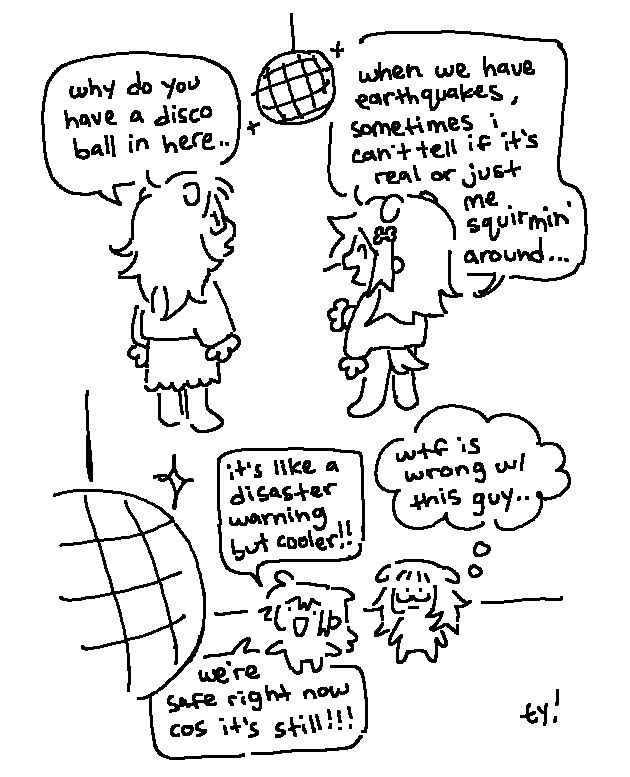 why do you
have a disco
ball in here..
when we have
earthquakes,
sometimes i
can't tell if it's
real or just
me
squirmin'
around...
it's like a
disaster
warning
but cooler!!
wtf is
wrong w/
this guy..
we're
safe right now
cos it's still!!!
ty!